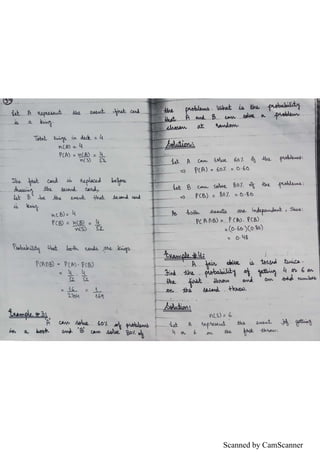 Let A represent the event first card
is a king.
Total kings in deck = 4
n(A) = 4
P(A) = n(A)/n(S) = 4/52
The first card is replaced before
drawing the second card,
let B be the event that second card
is king
n(B) = 4
P(B) = n(B)/n(S) = 4/52
Probability that both cards are kings
P(A∩B) = P(A) · P(B)
= 4/52 · 4/52
= 16/2704 = 1/169
Example # 3:
'A' can solve 60% of problems
in a book and 'B' can solve 80% of
the problems. What is the probability
that A and B can solve a problem
chosen at random
Solution:
Let A can solve 60% of the problems:
⇒ P(A) = 60% = 0.60
Let B can solve 80% of the problems:
⇒ P(B) = 80% = 0.80
As both events are independent, thus:
P(A∩B) = P(A) · P(B)
= (0.60)(0.80)
= 0.48
Example # 4:
A fair dice is tossed twice.
Find the probability of getting 4 or 6 on
the first throw and an odd number
on the second throw.
Solution:
n(S) = 6
Let A represent the event of getting
4 or 6 on the first throw.
Scanned by CamScanner